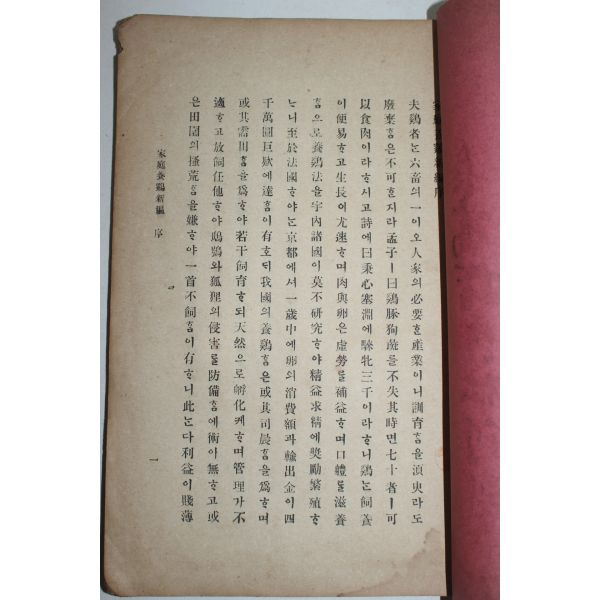 家庭養鷄新編序
夫鷄者ᄂᆞᆫ六畜의一이오人家의必要ᄒᆞᆫ産業이니訓育ᄒᆞᆷ을須臾라도
廢棄ᄒᆞᆷ은不可ᄒᆞᆫ지라孟子ㅣ曰鷄豚狗彘를不失其時면七十者ㅣ可
以食肉이라ᄒᆞ시고詩에曰秉心塞淵에騋牝三千이라ᄒᆞ니鷄ᄂᆞᆫ飼養
이便易ᄒᆞ고生長이尤速ᄒᆞ며肉與卵은虛勞를補益ᄒᆞ며口軆를滋養
ᄒᆞᆷ으로養鷄法을宇內諸國이莫不硏究ᄒᆞ야精益求精에奬勵繁殖ᄒᆞ
ᄂᆞ니至於法國ᄒᆞ야ᄂᆞᆫ京都에서一歲中에卵의消費額과輸出金이四
千萬圓巨欵에達ᄒᆞᆷ이有호ᄃᆡ我國의養鷄ᄒᆞᆷ은或其司晨ᄒᆞᆷ을爲ᄒᆞ며
或其需用ᄒᆞᆷ을爲ᄒᆞ야若干飼育ᄒᆞ되天然으로孵化케ᄒᆞ며管理가不
適ᄒᆞ고放飼任他ᄒᆞ야鴟鴞와狐狸의侵害를防備ᄒᆞᆷ에術이無ᄒᆞ고或
은田園의搔荒ᄒᆞᆷ을嫌ᄒᆞ야一首不飼ᄒᆞᆷ이有ᄒᆞ니此ᄂᆞᆫ다利益이賤薄
家庭養鷄新編 序
一